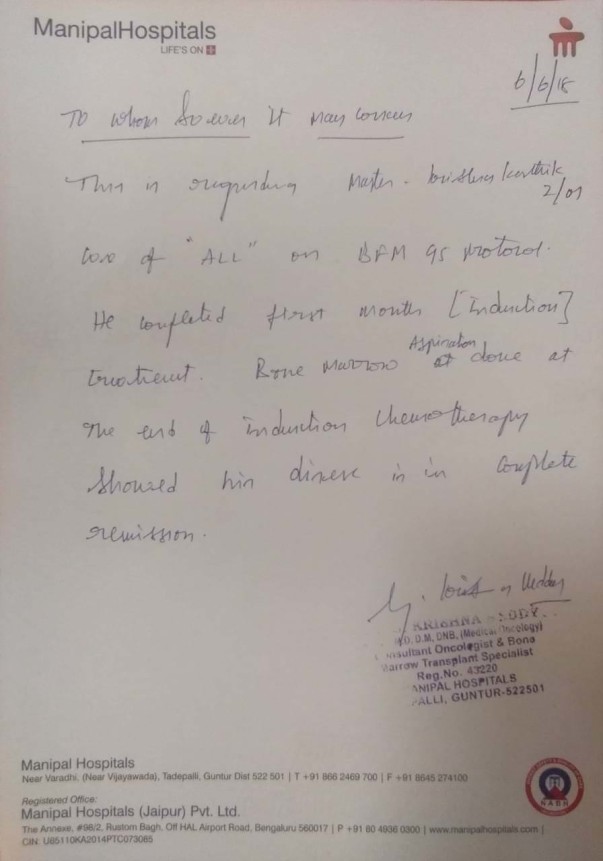 ManipalHospitals
LIFE'S ON
6/6/18
To whom So ever it may concern
This is regarding Master. Krishna karthik
2/01
case of "ALL" on BFM 95 protocol.
He completed first month [induction]
treatment. Bone marrow Aspiration done at
the end of induction chemotherapy
showed his disease is in complete
remission.
KRISHNA
D.M, DNB, (Medical Oncology)
Consultant Oncologist & Bone
Marrow Transplant Specialist
Reg.No. 43220
ANIPAL HOSPITALS
PALLI, GUNTUR-522501
Manipal Hospitals
Near Varadhi, (Near Vijayawada), Tadepalli, Guntur Dist 522 501 | T +91 866 2469 700 | F +91 8645 274100
Registered Office:
Manipal Hospitals (Jaipur) Pvt. Ltd.
The Annexe, #98/2, Rustom Bagh, Off HAL Airport Road, Bengaluru 560017 | P +91 80 4936 0300 | www.manipalhospitals.com |
CIN: U85110KA2014PTC073085
NABH